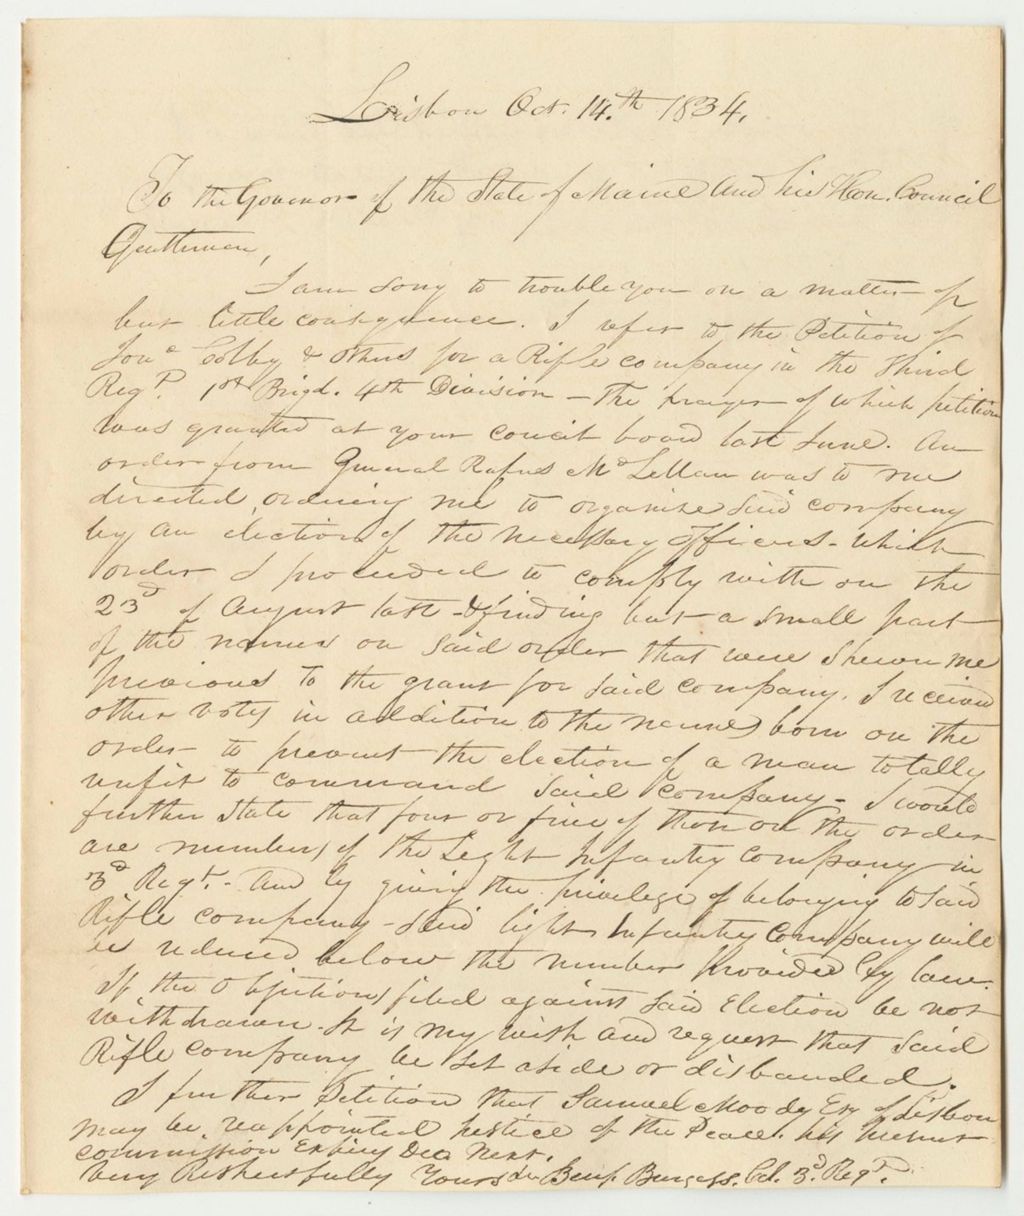 Lisbon Oct. 14.th 1834.
To the Governor of the State of Maine and his Hon. Council
Gentlemen,
I am sorry to trouble you on a matter of
but little consequence. I refer to the Petition of
Jona Colby & others for a Rifle company in the Third
Regt. 1st Brigd. 4th Division – The prayer of which petition
was granted at your board last June. An
order from General Rufus McLellan was to me
directed, ordering me to organise said company
by an election of the necessary officers – which
order I proceeded to comply with on the
23d of August last – & finding but a small part
of the names on said order that were shewn me
previous to the grant for said company. I received
other votes in addition to the names born on the
order – to prevent the election of a man totally
unfit to command said company – I would
further State that four or five of those on the order
are members of the Light Infantry company in
3d Regt. – and by giving the privilege of belonging to said
Rifle company – said light Infantry company will
be reduced below the number provided by law.
If the objections filed against said Election be not
withdrawn – It is my wish and request that said
Rifle company be set aside or disbanded.
I further Petition that Samuel Moody Esq of Lisbon
may be reappointed justice of the Peace. his
commission Expiring Dec next.
Very Respectfully Yours Benj Burgess. Col. 3d. Regt.